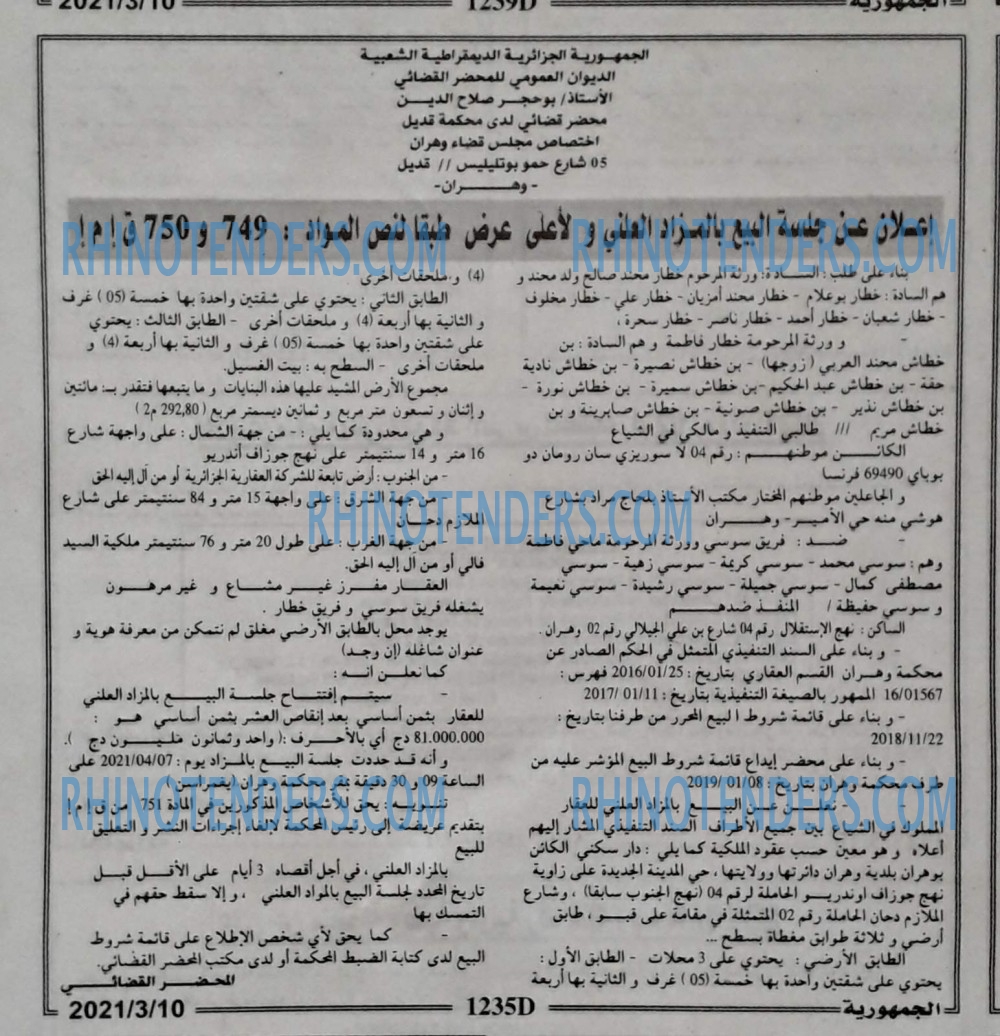 2021/3/10
1239D
الجمهورية
الجمهورية الجزائرية الديمقراطية الشعبية
الديوان العمومي للمحضر القضائي
الأستاذ/ بوحجر صلاح الدين
محضر قضائي لدى محكمة قديل
اختصاص مجلس قضاء وهران
05 شارع حمو بوتليليس // قديل
- وهران-
إعلان عن جلسة البيع بالمزاد العلني و لأعلى عرض طبقا لنص المواد : 749 و 750 ق إ م إ
بناء على طلب : السادة: ورثة المرحوم خطار محند صالح ولد محند و
هم السادة : خطار بوعلام - خطار محند أمزيان - خطار علي - خطار مخلوف
- خطار شعبان - خطار أحمد - خطار ناصر - خطار سحرة ،
- و ورثة المرحومة خطار فاطمة و هم السادة : بن
خطاش محند العربي (زوجها) - بن خطاش نصيرة - بن خطاش نادية
حفة - بن خطاش عبد الحكيم -بن خطاش سميرة - بن خطاش نورة -
بن خطاش نذير - بن خطاش صونية - بن خطاش صابرينة و بن
خطاش مريم /// طالبي التنفيذ و مالكي في الشياع
الكائن موطنهم : رقم 04 لا سوريزي سان رومان دو
بوباي 69490 فرنسا
و الجاعلين موطنهم المختار مكتب الأستاذ بلحاج مراد بشارع
هوشي منه حي الأمير - وهران
- ضد : فريق سوسي وورثة المرحومة ماحي فاطمة
وهم : سوسي محمد - سوسي كريمة - سوسي زهية - سوسي
مصطفى كمال - سوسي جميلة - سوسي رشيدة - سوسي نعيمة
و سوسي حفيظة / المنفذ ضدهم
الساكن : نهج الإستقلال رقم 04 شارع بن علي الجيلالي رقم 02 وهران .
- و بناء على السند التنفيذي المتمثل في الحكم الصادر عن
محكمة وهران القسم العقاري بتاريخ : 2016/01/25 فهرس :
16/01567 الممهور بالصيغة التنفيذية بتاريخ : 01/11/ 2017
- و بناء على قائمة شروط البيع المحرر من طرفنا بتاريخ :
2018/11/22
- و بناء على محضر إيداع قائمة شروط البيع المؤشر عليه من
طرف محكمة وهران بتاريخ : 01/08/ 2019
- نعلن عن البيع بالمزاد العلني للعقار
المملوك في الشياع بين جميع الأطراف السند التنفيذي المشار إليهم
أعلاه و هو معين حسب عقود الملكية كما يلي : دار سكني الكائن
بوهران بلدية وهران دائرتها وولايتها ، حي المدينة الجديدة على زاوية
نهج جوزاف اوندريو الحاملة لرقم 04 (نهج الجنوب سابقا) ، وشارع
الملازم دحان الحاملة رقم 02 المتمثلة في مقامة على قبو ، طابق
أرضي و ثلاثة طوابق مغطاة بسطح ...
الطابق الأرضي : يحتوي على 3 محلات - الطابق الأول :
يحتوي على شقتين واحدة بها خمسة (05) غرف و الثانية بها أربعة
(4) و ملحقات أخرى
الطابق الثاني : يحتوي على شقتين واحدة بها خمسة (05) غرف
و الثانية بها أربعة (4) و ملحقات أخرى - الطابق الثالث : يحتوي
على شقتين واحدة بها خمسة (05) غرف و الثانية بها أربعة (4) و
ملحقات أخرى - السطح به : بيت الغسيل.
مجموع الأرض المشيد عليها هذه البنايات و ما يتبعها فتقدر بـ: مائتين
و إثنان و تسعون متر مربع و ثمانين ديسمتر مربع (292,80 م2)
و هي محدودة كما يلي : - من جهة الشمال : على واجهة شارع
16 متر و 14 سنتيمتر على نهج جوزاف أندريو
- من الجنوب : أرض تابعة للشركة العقارية الجزائرية أو من آل إليه الحق
- من جهة الشرق : على واجهة 15 متر و 84 سنتيمتر على شارع
الملازم دحان
- من جهة الغرب : على طول 20 متر و 76 سنتيمتر ملكية السيد
فالي أو من آل إليه الحق.
العقار مفرز غير مشاع و غير مرهون
يشغله فريق سوسي و فريق خطار .
يوجد محل بالطابق الأرضي مغلق لم نتمكن من معرفة هوية و
عنوان شاغله (إن وجد)
كما نعلن انه :
- سيتم إفتتاح جلسة البيع بالمزاد العلني
للعقار بثمن أساسي بعد إنقاص العشر بثمن أساسي هو :
81.000.000 دج أي بالأحرف :( واحد وثمانون مليون دج ).
و أنه قد حددت جلسة البيع بالمزاد يوم : 2021/04/07 على
الساعة 09 و 30 دقيقة بمقر محكمة وهران (بقمراس)
تنويه : يحق للأشخاص المذكورين في المادة 751 من ق إ م إ
بتقديم عريضة إلى رئيس المحكمة لإلغاء إجراءات النشر و التعليق
للبيع
بالمزاد العلني ، في أجل أقصاه 3 أيام على الأقل قبل
تاريخ المحدد لجلسة البيع بالمزاد العلني ، و إلا سقط حقهم في
التمسك بها
- كما يحق لأي شخص الإطلاع على قائمة شروط
البيع لدى كتابة الضبط المحكمة أو لدى مكتب المحضر القضائي.
المحضر القضائي
2021/3/10
1235D
الجمهورية
RHINOTENDERS.COM
RHINOTENDERS.COM
RHINOTENDERS.COM
RHINOTENDERS.COM
RHINOTENDERS.COM